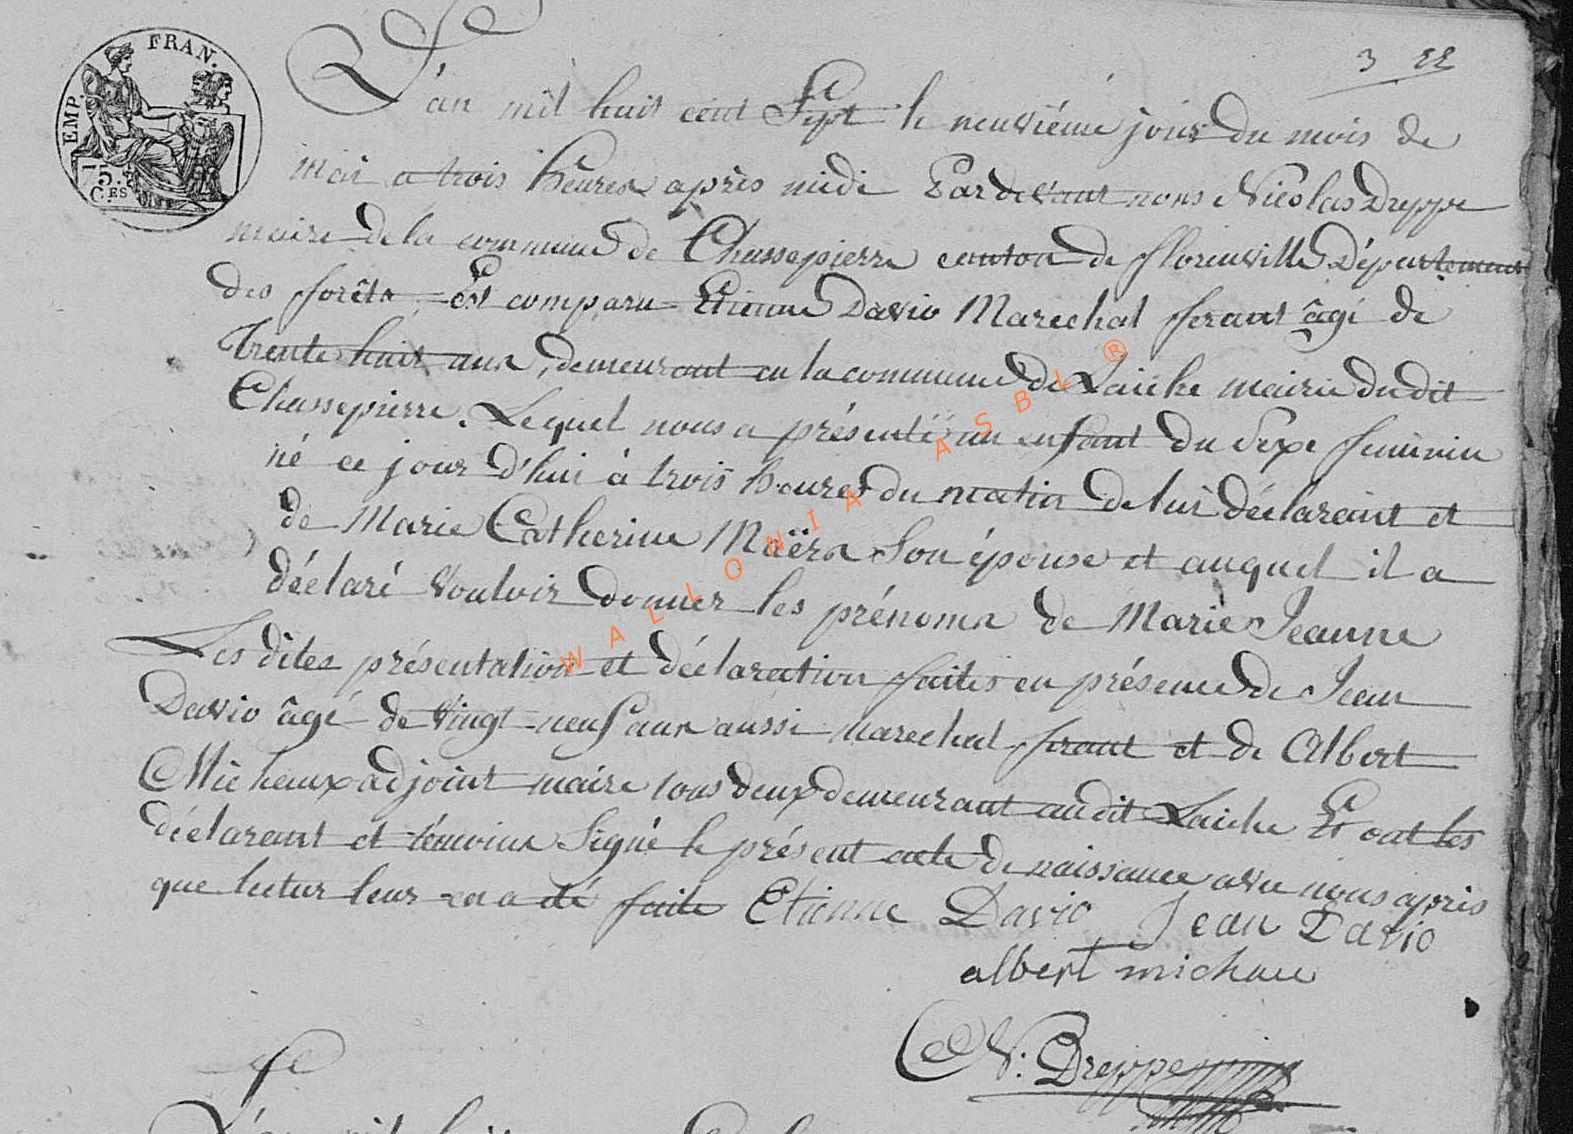 3 22
EMP. FRAN.
L'an mil huit cent Sept le neuvième jour du mois de
mai a trois heures après midi Pardevant nous Nicolas Dreppe
maire de la commune de Chassepierre canton de florenville Département
des forêts Est comparu Etienne Davio Marechal ferant âgé de
Trente huit ans, demeurant en la commune de Laiche mairie dudit
Chassepierre. Lequel nous a présenté un enfant du Sexe feminin
né ce jour d'hui à trois heures du matin de lui déclarant et
de Marie Catherine Maërs Son épouse et auquel il a
déclaré Vouloir donner les prénoms de Marie Jeanne
Les dites présentation et déclaration faites en présence de Jean
Davio âgé de Vingt neuf ans aussi marechal ferant et de Albert
Micheux adjoint maire tous deux demeurant audit Laiche Et ont les
déclarant et témoins Signé le présent acte de naissance avec nous après
que lectur leur en a été faite Etienne Davio Jean Davio
albert michau
N. Dreppe
WALLONIA ASBL ®